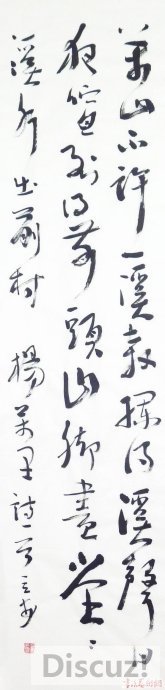 萬山不許一溪奔攔得溪聲日
夜喧到得前頭山腳盡堂〻
溪水出前村 楊萬里詩一首
Discuz!